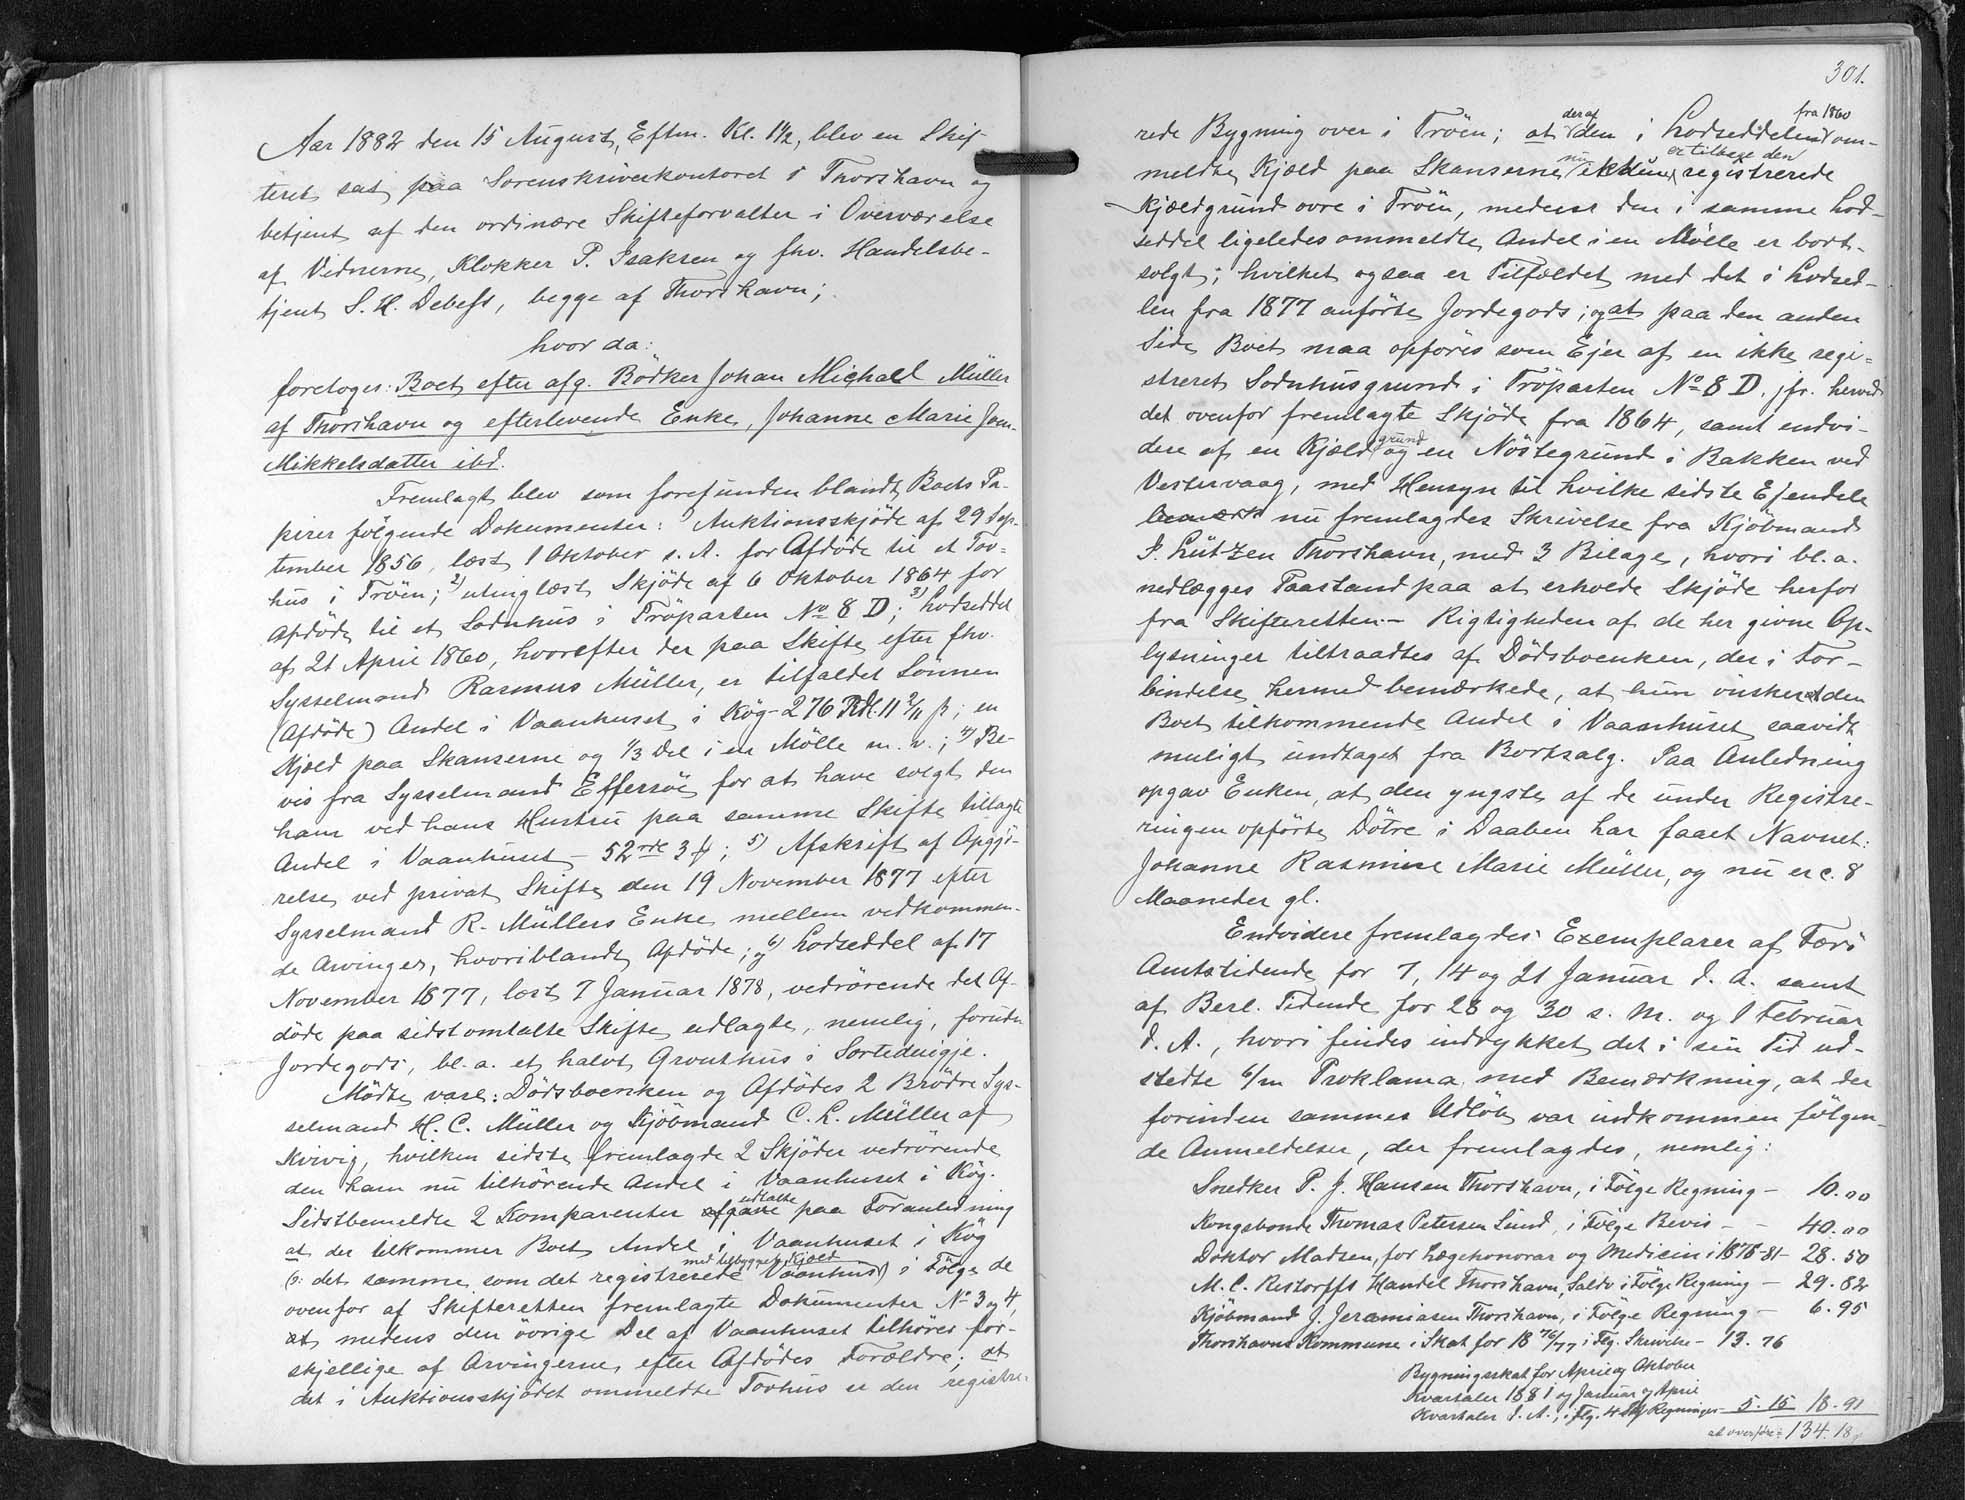 Aar 1882 den 15 August, Eftm. Kl. 1½, blev en Skif-
teret sat paa Sorenskriverkontoret i Thorshavn og
betjent af den ordinære Skifteforvalter i Overværelse
af Vidnerne, Klokker P. Isaksen og fhv. Handelsbe-
tjent S. H. Debess, begge af Thorshavn;
hvor da:
foretoges: Boet efter afg. Bödker Johan Michael Müller
af Thorshavn og efterlevende Enke, Johanne Marie Joen-
Mikkelsdatter ibd.
Fremlagt blev som forefunden blandt Boets Pa-
pirer fölgende Dokumenter: 1) Auktionsskjöde af 29 Sep-
tember 1856, læst 1 Oktober s. A. for Afdöde til et Tov-
hus i Tröen; 2) utinglæst Skjöde af 6 Oktober 1864 for
Afdöde til et Sodnhus i Tröparten No 8 D; 3) Lodseddel
af 21 April 1860, hvorefter der paa Skifte efter fhv.
Sysselmand Rasmus Müller, er tilfaldet Sönnen
(Afdöde) Andel i Vaanhuset i Kög - 276 Rdl. 11 2/11 ß; en
Kjæld paa Skanserne og 1/3 Del i en Mölle m. v.; 4) Be-
vis fra Sysselmand Effersöe for at have solgt den
ham ved hans Hustru paa samme Skifte tillagte
Andel i Vaanhuset - 52 rdl 3 ß; 5) Afskrift af Opgjö-
relse ved privat Skifte den 19 November 1877 efter
Sysselmand R. Müllers Enke mellem vedkommen-
de Arvinger, hvoriblandt Afdöde; og 6) Lodseddel af 17
November 1877, læst 7 Januar 1878, vedrörende det Af-
döde paa sidstomtalte Skifte udlagte, nemlig, foruden
Jordegods, bl. a. et halvt Grouthus i Sorteduigje.
Mödte vare: Dödsboenken og Afdödes 2 Brödre Sys-
selmand H. C. Müller og Kjöbmand C. L. Müller af
Kvivig, hvilken sidste fremlagde 2 Skjöder vedrörende
den ham nu tilhörende Andel i Vaanhuset i Kög.
Sidstbemeldte 2 Komparenter afgave udtalte paa Foranledning
at der tilkommer Boet Andel i Vaanhuset i Kög
(ɔ: det samme som det registrerede Vaanhus med tilbygget Kjæld) i Fölge de
ovenfor af Skifteretten fremlagte Dokumenter No 3 og 4,
at medens den övrige Del af Vaanhuset tilhörer for-
skjellige af Arvingerne efter Afdödes Forældre; at
det i Auktionsskjödet ommeldte Tovhus er den registre-
301.
rede Bygning over i Tröen; at deraf den i Lodseddelen fra 1860 om-
meldte Kjæld paa Skanserne nu er tilbage den registrerede
Kjældgrund ovre i Tröen, medens den i samme Lod-
seddel ligeledes ommeldte Andel i en Mölle er bort-
solgt; hvilket ogsaa er Tilfældet med det i Lodsed-
len fra 1877 anförte Jordegods; og at paa den anden
Side Boet maa opföres som Ejer af en ikke regi-
streret Sodnhusgrund i Tröparten No 8 D, jfr. herved
det ovenfor fremlagte Skjöde fra 1864, samt endvi-
dere af en Kjældgrund og en Nöstegrund i Bakken ved
Vestervaag, med Hensyn til hvilke sidste Ejendele
nu fremlagdes Skrivelse fra Kjöbmand
J. Lützen Thorshavn, med 3 Bilage, hvori bl. a.
nedlægges Paastand paa at erholde Skjöde herfor
fra Skifteretten. - Rigtigheden af de her givne Op-
lysninger tiltraadtes af Dödsboenken, der i For-
bindelse hermed bemærkede, at hun önsker den
Boet tilkommende Andel i Vaanhuset saavidt
muligt undtaget fra Bortsalg. Paa Anledning
opgav Enken, at den yngste af de under Registre-
ringen opförte Dötre i Daaben har faaet Navnet:
Johanne Rasmine Marie Müller, og nu er c. 8
Maaneder gl.
Endvidere fremlagdes Exemplarer af Færö
Amtstidende for 7, 14 og 21 Januar d. A. samt
af Berl. Tidende for 28 og 30 s. M. og 1 Februar
d. A., hvori findes indrykket det i sin Tid ud-
stedte 6/m Proklama med Bemærkning, at der
forinden sammes Udlöb var indkommen fölgen-
de Anmeldelser, der fremlagdes, nemlig:
Snedker P. J. Hansen Thorshavn, i Fölge Regning - 10.00
Kongsbonde Thomas Petersen Sund, i Fölge Bevis - - 40.00
Doktor Madsen, for Lægehonorar og Medicin i 1876-81 - 28.50
M. C. Restorffs Handel Thorshavn, Saldo i Fölge Regning - 29.82
Kjöbmand J. Jeremiasen Thorshavn, i Fölge Regning - 6.95
Thorshavns Kommune i Skat for 18 76/77 i Flg. Skrivelse - 13.76
Bygningsskat for April og Oktober
Kvartaler 1881 og Januar og April
Kvartaler d. A., i Flg. 4 Regninger - 5.15 18.91
at overföre: 134.18